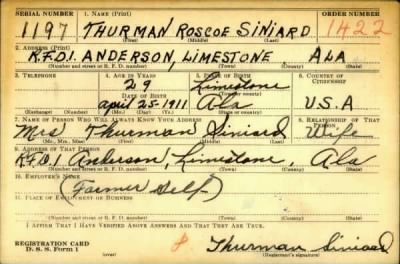 SERIAL NUMBER 1. NAME (Print) ORDER NUMBER
1197 THURMAN ROSCOE SINIARD 1422
(First) (Middle) (Last)
2. ADDRESS (Print)
R.F.D.1. ANDERSON, LIMESTONE ALA
(Number and street or R. F. D. number) (Town) (County) (State)
3. TELEPHONE 4. AGE IN YEARS 5. PLACE OF BIRTH 6. COUNTRY OF CITIZENSHIP
29 Limestone
DATE OF BIRTH (Town or county)
April 25-1911 Ala U.S.A
(Exchange) (Number) (Mo.) (Day) (Yr.) (State or country)
7. NAME OF PERSON WHO WILL ALWAYS KNOW YOUR ADDRESS 8. RELATIONSHIP OF THAT PERSON
Mrs Thurman Siniard Wife
(Mr., Mrs., Miss) (First) (Middle) (Last)
9. ADDRESS OF THAT PERSON
R.F.D.1 Anderson, Limestone, Ala
(Number and street or R. F. D. number) (Town) (County) (State)
10. EMPLOYER'S NAME
(Farmer Self)
11. PLACE OF EMPLOYMENT OR BUSINESS
(Number and street or R. F. D. number) (Town) (County) (State)
I AFFIRM THAT I HAVE VERIFIED ABOVE ANSWERS AND THAT THEY ARE TRUE.
REGISTRATION CARD
D. S. S. Form 1 Thurman Siniard
(over) (Registrant's signature)